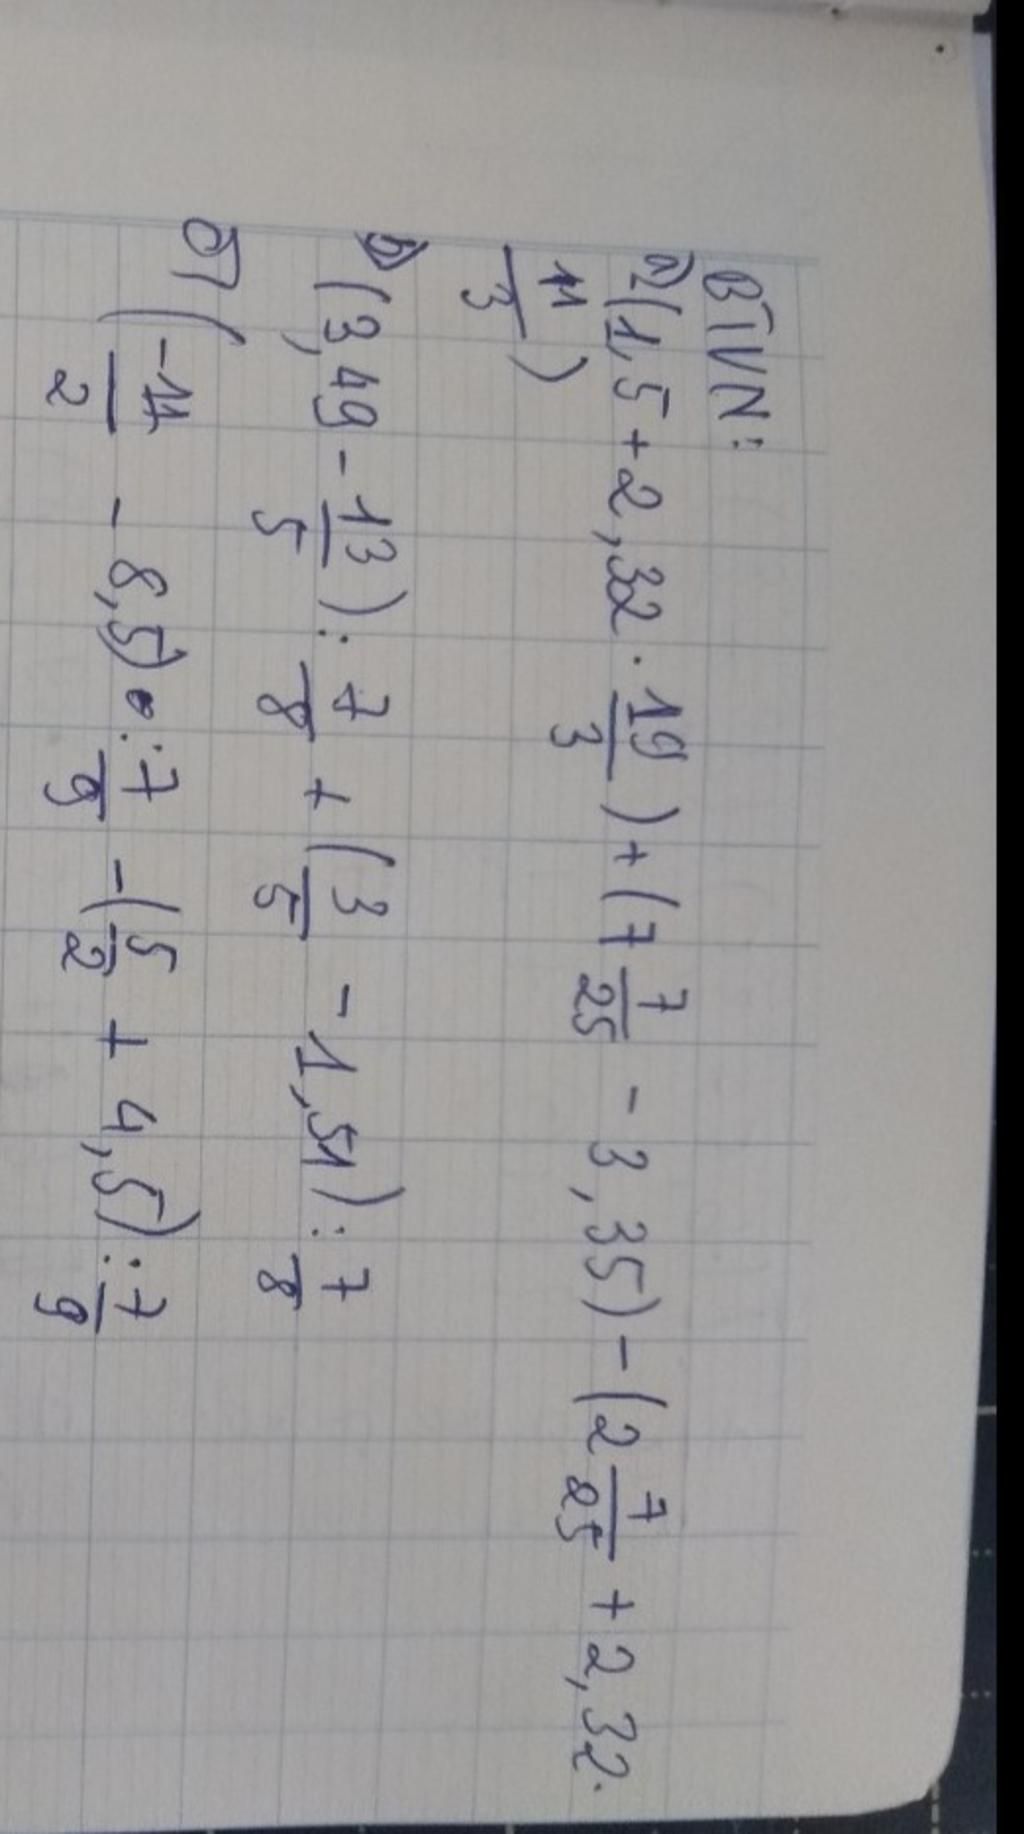 BTVN:
a) (1,5 + 2,32 . 19/3) + (7 7/25 - 3,35) - (2 7/25 + 2,32.
11/3)
b) (3,49 - 13/5) : 7/8 + (3/5 - 1,51) : 7/8
c) (-11/2 - 8,5) : 7/9 - (5/2 + 4,5) : 7/9